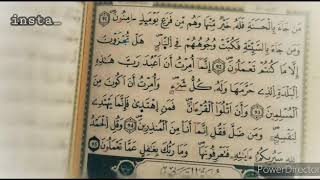 insta_
مَن جَاءَ بِالْحَسَنَةِ فَلَهُ خَيْرٌ مِّنْهَا وَهُم مِّن فَزَعٍ يَوْمَئِذٍ آمِنُونَ
وَمَن جَاءَ بِالسَّيِّئَةِ فَكُبَّتْ وُجُوهُهُمْ فِي النَّارِ هَلْ تُجْزَوْنَ
إِلَّا مَا كُنتُمْ تَعْمَلُونَ ۝ إِنَّمَا أُمِرْتُ أَنْ أَعْبُدَ رَبَّ هَذِهِ
الْبَلْدَةِ الَّذِي حَرَّمَهَا وَلَهُ كُلُّ شَيْءٍ وَأُمِرْتُ أَنْ أَكُونَ مِنَ
الْمُسْلِمِينَ ۝ وَأَنْ أَتْلُوَ الْقُرْآنَ فَمَنِ اهْتَدَى فَإِنَّمَا يَهْتَدِي
لِنَفْسِهِ وَمَن ضَلَّ فَقُلْ إِنَّمَا أَنَا مِنَ الْمُنذِرِينَ ۝ وَقُلِ الْحَمْدُ
لِلَّهِ سَيُرِيكُمْ آيَاتِهِ فَتَعْرِفُونَهَا وَمَا رَبُّكَ بِغَافِلٍ عَمَّا تَعْمَلُونَ
PowerDirector